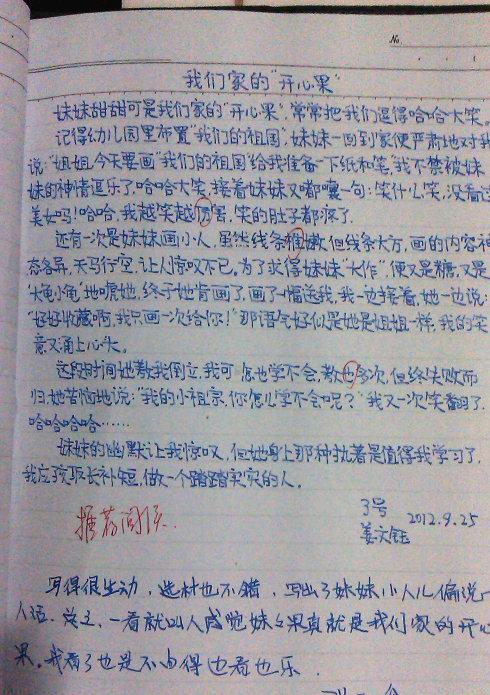 No
我们家的"开心果"
妹妹甜甜可是我们家的"开心果",常常把我们逗得哈哈大笑。
记得幼儿园里布置"我们的祖国",妹妹一回到家便严肃地对我
说:"姐姐今天要画"我们的祖国"给我准备一下纸和笔,我不禁被妹
妹的神情逗乐了哈哈大笑,接着妹妹又嘟囔一句:笑什么笑,没看过
美女吗!哈哈,我越笑越厉害,笑的肚子都疼了.
还有一次是妹妹画小人,虽然线条稚嫩,但线条大方,画的内容神
态各异,天马行空,让人惊叹不已。为了求得妹妹"大作",便又是糖,又是
"大龟小龟"地哄她,终于她肯画了,画了一幅送我,我一边接着,她一边说:
"好好收藏啊,我只画一次给你!"那语气好似是她是姐姐一样,我的笑
意又涌上心头。
这段时间她教我倒立,我可怎也学不会,教也多次,但终失败而
归,她苦恼地说:"我的小祖宗,你怎么学不会呢?"我又一次笑翻了.
哈哈哈哈……
妹妹的幽默让我惊叹,但她身上那种执着是值得我学习了,
我应该取长补短,做一个踏踏实实的人。
3号
推荐阅读. 2012.9.25
姜文钰
写得很生动,选材也不错,写出了妹妹小人儿偏说
人话,总之,一看就叫人感觉妹妹果真就是我们家的开心
果。我看了也是不由得也看也乐.